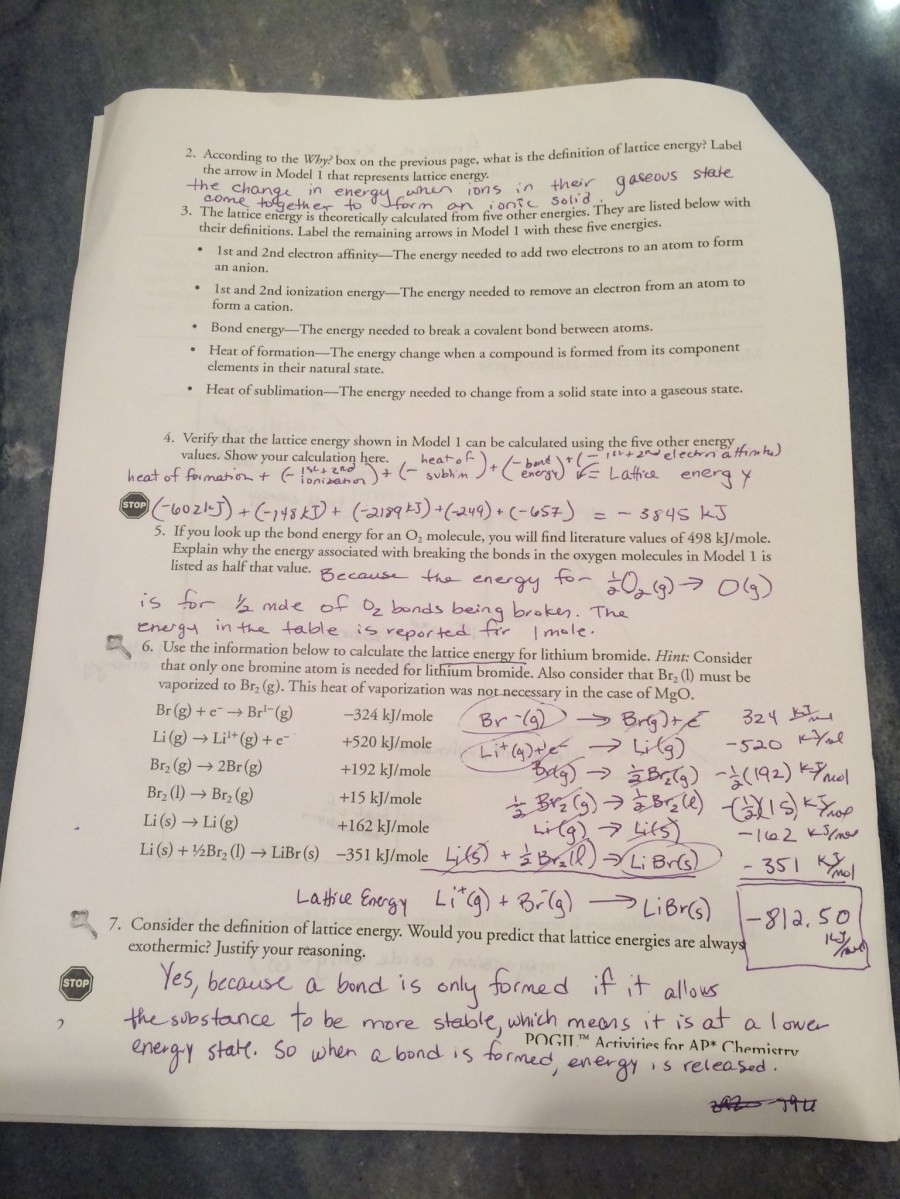 2. According to the Why? box on the previous page, what is the definition of lattice energy? Label
the arrow in Model 1 that represents lattice energy.
the change in energy when ions in their gaseous state
come together to form an ionic solid.
3. The lattice energy is theoretically calculated from five other energies. They are listed below with
their definitions. Label the remaining arrows in Model 1 with these five energies.
• 1st and 2nd electron affinity—The energy needed to add two electrons to an atom to form
an anion.
• 1st and 2nd ionization energy—The energy needed to remove an electron from an atom to
form a cation.
• Bond energy—The energy needed to break a covalent bond between atoms.
• Heat of formation—The energy change when a compound is formed from its component
elements in their natural state.
• Heat of sublimation—The energy needed to change from a solid state into a gaseous state.
4. Verify that the lattice energy shown in Model 1 can be calculated using the five other energy
values. Show your calculation here.
heat of formation + (- 1st + 2nd ionization) + (- heat of sublim) + (- bond energy) + (- 1st + 2nd electron affinity) = Lattice energy
STOP (-602kJ) + (-148 kJ) + (-2189 kJ) + (-249) + (-657) = - 3845 kJ
5. If you look up the bond energy for an O₂ molecule, you will find literature values of 498 kJ/mole.
Explain why the energy associated with breaking the bonds in the oxygen molecules in Model 1 is
listed as half that value. Because the energy for ½O₂(g) → O(g)
is for ½ mole of O₂ bonds being broken. The
energy in the table is reported for 1 mole.
6. Use the information below to calculate the lattice energy for lithium bromide. Hint: Consider
that only one bromine atom is needed for lithium bromide. Also consider that Br₂ (l) must be
vaporized to Br₂ (g). This heat of vaporization was not necessary in the case of MgO.
Br (g) + e⁻ → Br¹⁻ (g) –324 kJ/mole Br⁻(g) → Br(g) + e⁻ 324 kJ/mol
Li (g) → Li¹⁺ (g) + e⁻ +520 kJ/mole Li⁺(g) + e⁻ → Li(g) -520 kJ/mol
Br₂ (g) → 2Br (g) +192 kJ/mole Br(g) → ½Br₂(g) -½(192) kJ/mol
Br₂ (l) → Br₂ (g) +15 kJ/mole ½ Br₂(g) → ½Br₂(l) -(½)(15) kJ/mol
Li (s) → Li (g) +162 kJ/mole Li(g) → Li(s) -162 kJ/mol
Li (s) + ½Br₂ (l) → LiBr (s) –351 kJ/mole Li(s) + ½Br₂(l) → LiBr(s) - 351 kJ/mol
Lattice Energy Li⁺(g) + Br⁻(g) → LiBr(s) -812.50 kJ/mol
7. Consider the definition of lattice energy. Would you predict that lattice energies are always
exothermic? Justify your reasoning.
STOP Yes, because a bond is only formed if it allows
the substance to be more stable, which means it is at a lower
POGIL™ Activities for AP* Chemistry
energy state. So when a bond is formed, energy is released.